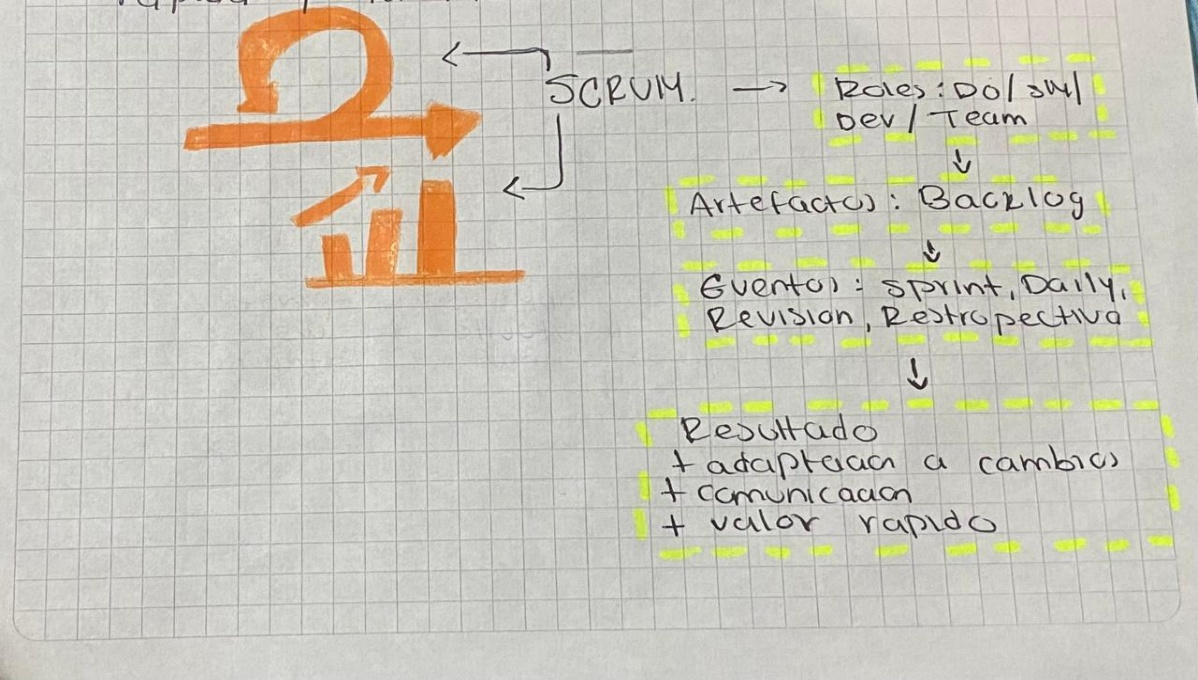 SCRUM. →
Roles: DO/SM/
Dev / Team
↓
Artefactos: Backlog
↓
Eventos: Sprint, Daily,
Revision, Restropectiva
↓
Resultado
+ adaptacion a cambios
+ comunicacion
+ valor rapido